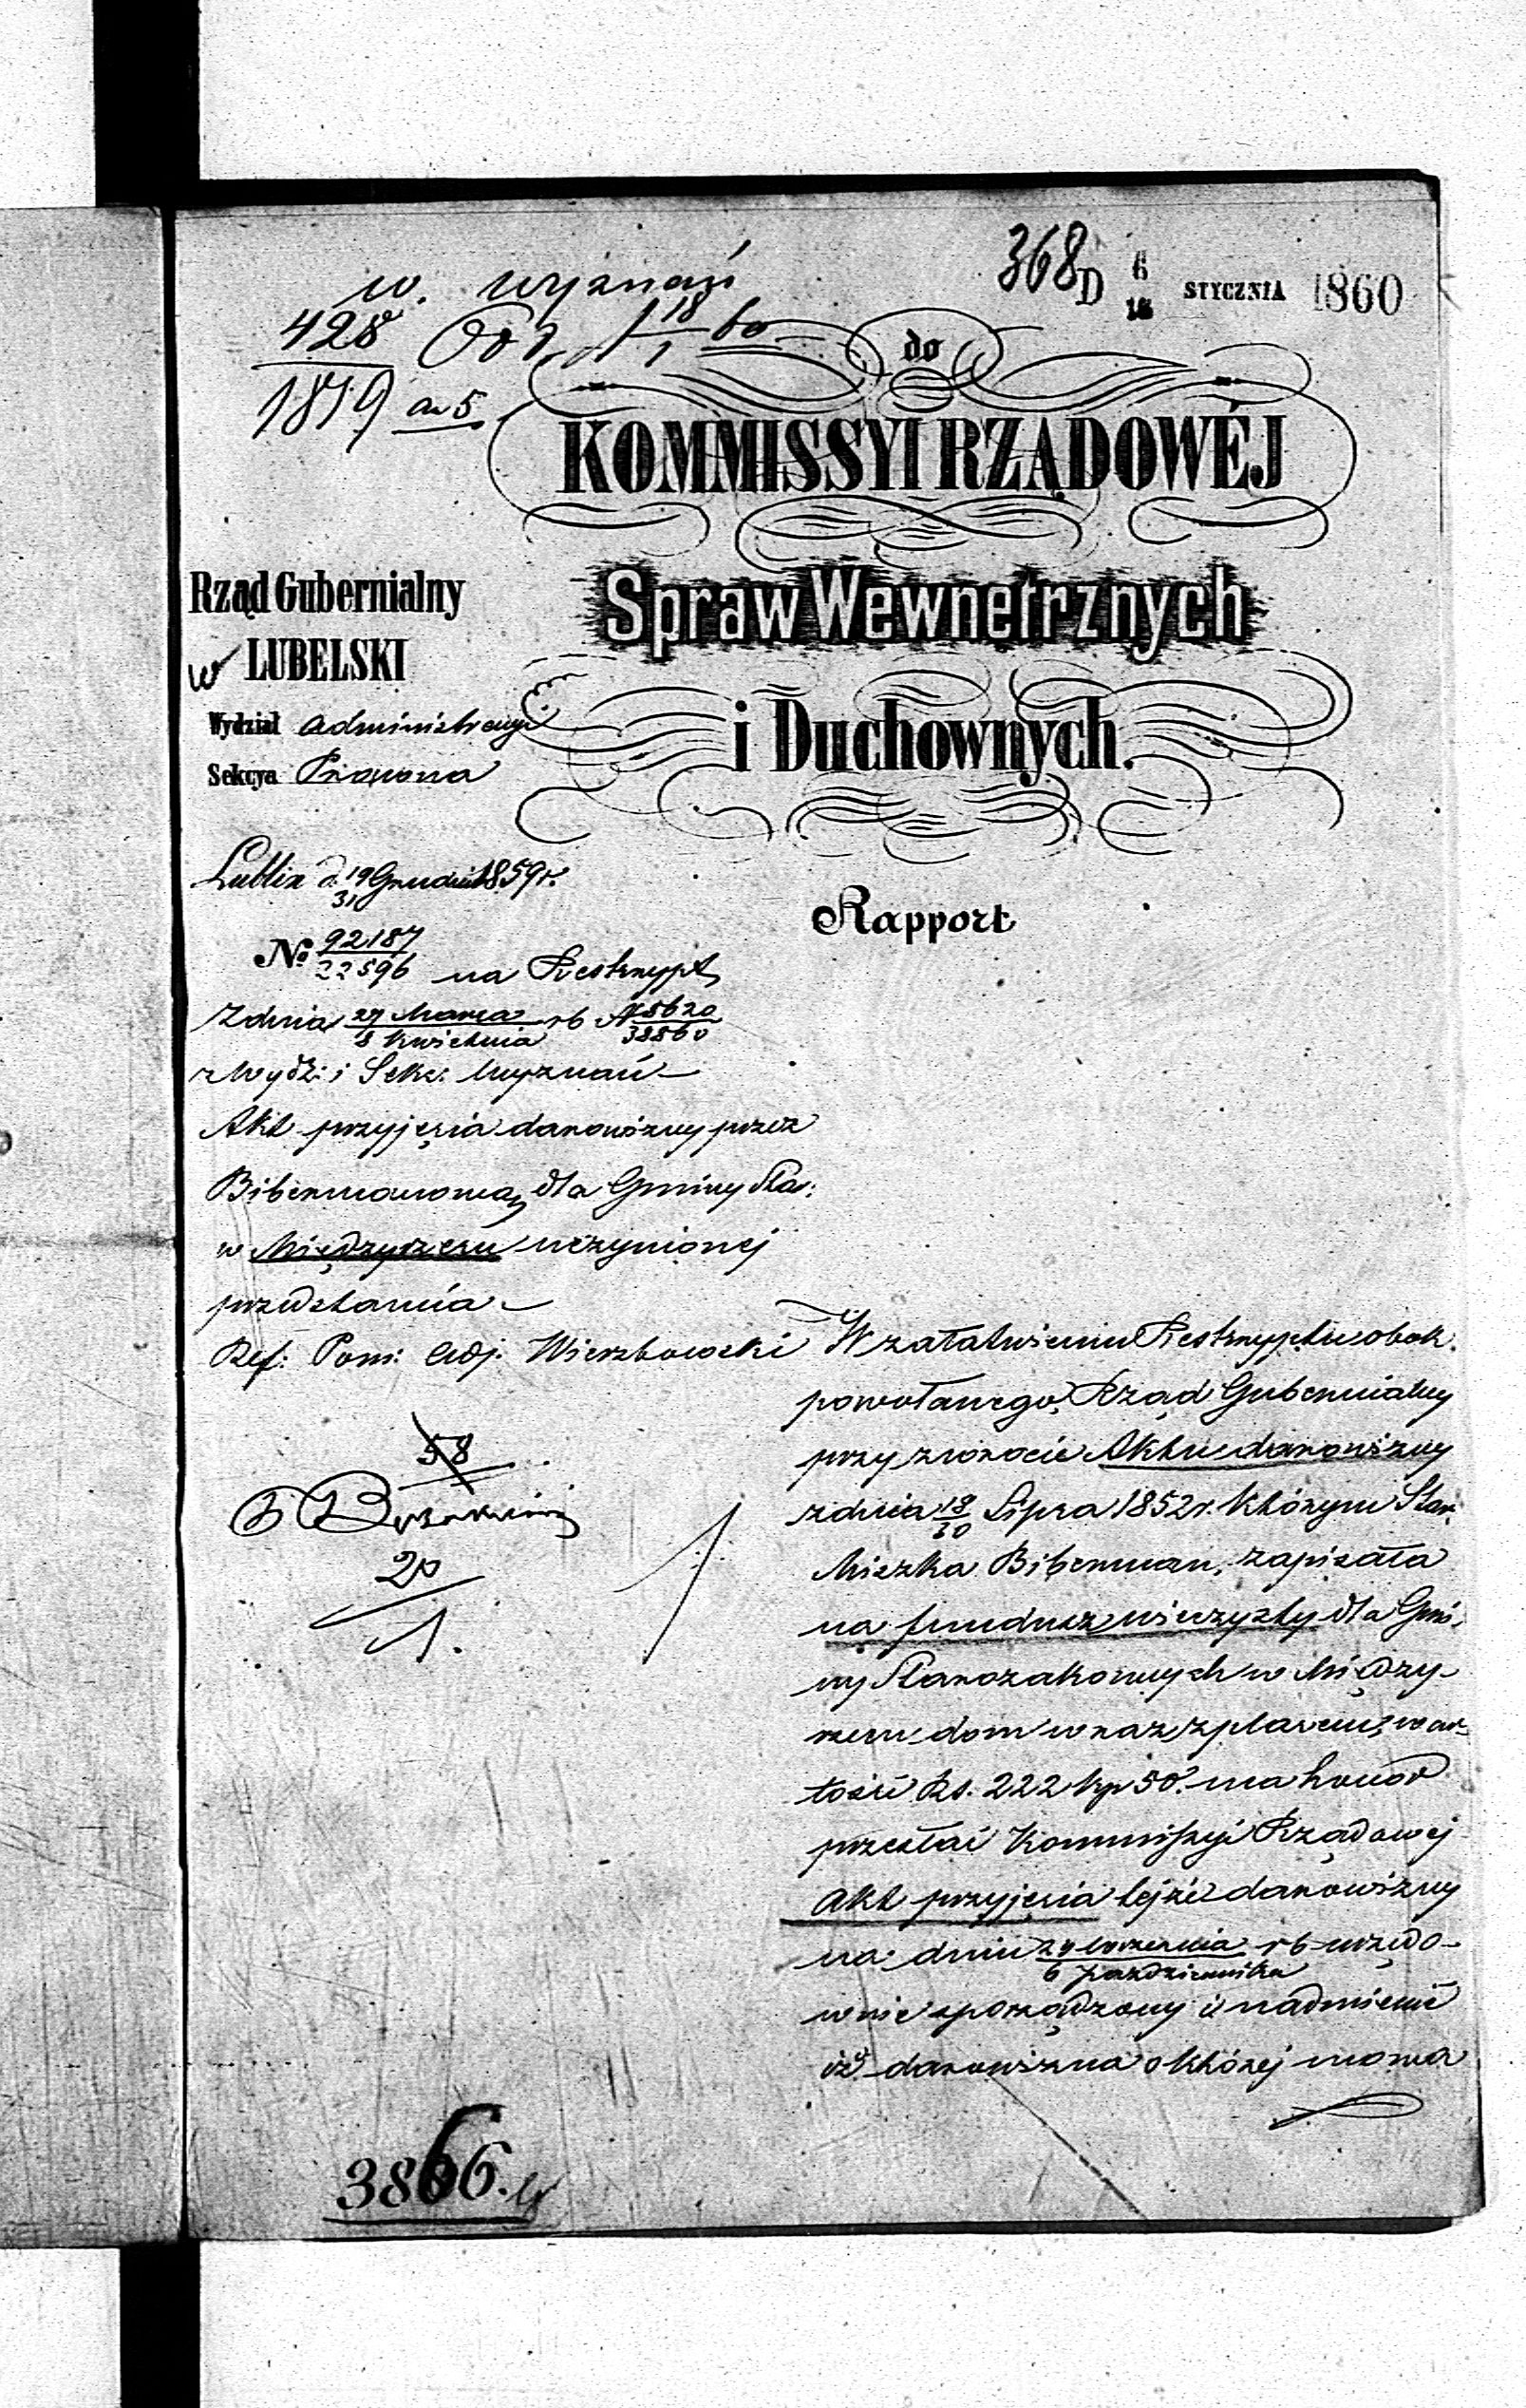 368 D 6/18 STYCZNIA 1860
w. wyznań
428
1879 an 5
18/1 60
do
KOMMISSYI RZĄDOWÉJ
Spraw Wewnętrznych
i Duchownych.
Rząd Gubernialny
w LUBELSKI
Wydział Administracyi
Sekcya Prawna
Lublin d. 19/31 Grudnia 1859 r.
Rapport
No 92187/22596 na Restrypt
z dnia 27 Marca/8 Kwietnia rb N 5620/38860
z Wydz: i Sekc: Wyznań
Akt przyjęcia darowizny przez
Bibermanową dla Gminy Star:
w Międzyrzecu uczynionej
przedstawia
Ref: Pom: Adj. Wierzbowski
58
20
1.
W załatwieniu Restryptu obok
powołanego, Rząd Gubernialny
przy zwrocie Aktu darowizny
z dnia 18/30 Lipca 1852 r. którym Star:
Miszka Biberman, zapisała
na fundusz wieczysty dla Gmi-
ny Starozakonnych w Między-
rzecu dom wraz z placem, war-
tości Rs. 222 kp 50. ma honor
przesłać Kommissyi Rządowej
Akt przyjęcia tejże darowizny
na dniu 24 Września/6 Października rb urzędo-
wnie sporządzony i nadmienić
iż darowizna o której mowa
3866.